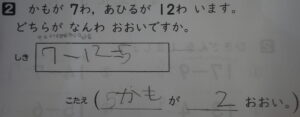 2 かもが 7わ、あひるが 12わ います。
どちらが なんわ おおいですか。
しき 7-12=5
こたえ ( 5かも が 2 おおい。)